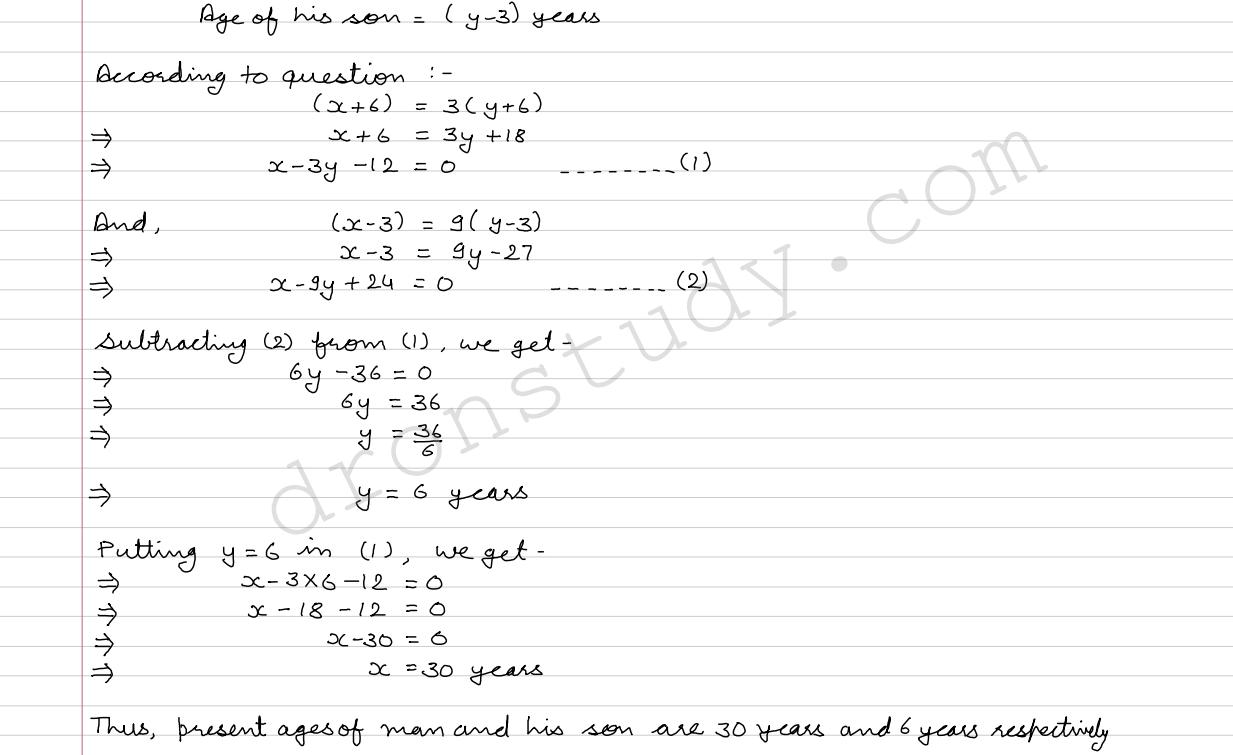 Age of his son = (y-3) years
According to question :-
(x+6) = 3(y+6)
⇒ x+6 = 3y+18
⇒ x-3y-12 = 0 --------(1)
And, (x-3) = 9(y-3)
⇒ x-3 = 9y-27
⇒ x-9y+24 = 0 --------(2)
Subtracting (2) from (1), we get-
⇒ 6y-36 = 0
⇒ 6y = 36
⇒ y = 36/6
⇒ y = 6 years
Putting y=6 in (1), we get-
⇒ x-3×6-12 = 0
⇒ x-18-12 = 0
⇒ x-30 = 0
⇒ x = 30 years
Thus, present ages of man and his son are 30 years and 6 years respectively
dronstudy.com